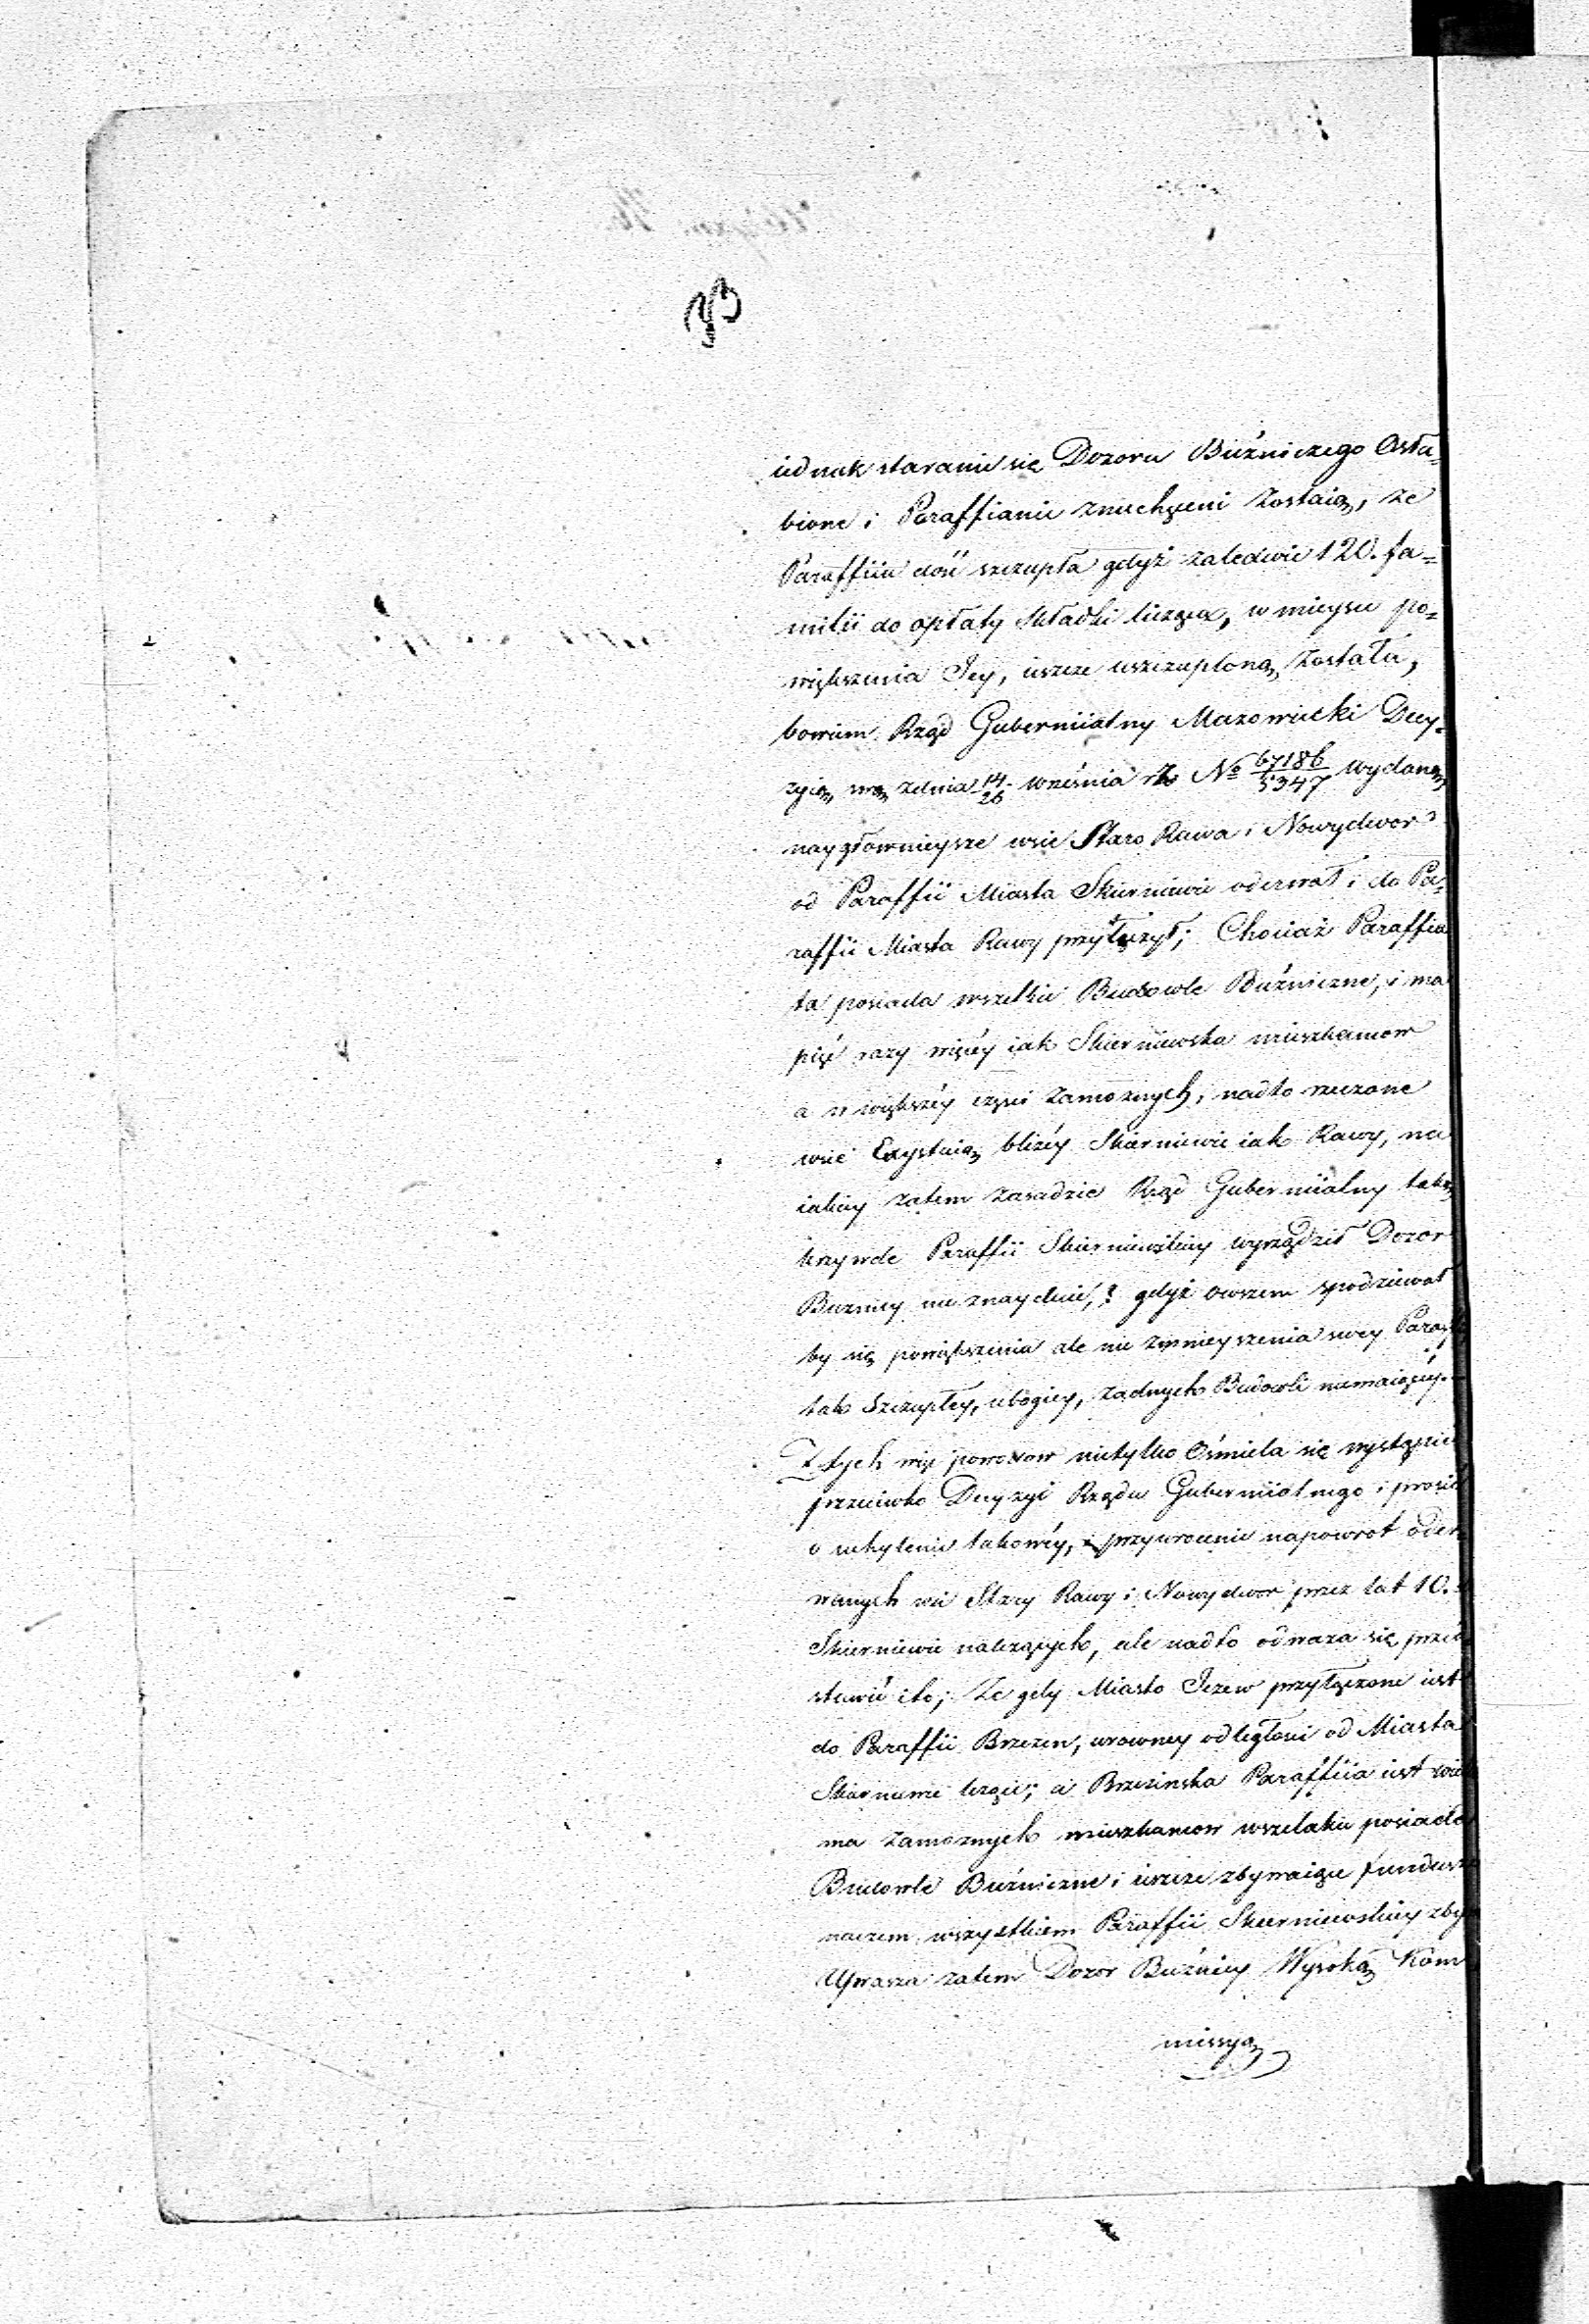 iednak staranie się Dozoru Buźniczego Osła=
bione i Paraffianie zniechęceni zostaią, że
Paraffiia dość szczupła gdyż zaledwie 120. fa=
milii do opłaty składki licząca, w mieyscu po=
większenia Iey, ieszcze uszczuploną została,
bowiem Rząd Guberniialny Mazowiecki Decy=
zyią swą zdnia 14/26 września rb № 67186/5347 wydaną
naygłownieysze wsie Staro Rawa i Nowydwor
od Paraffii Miasta Skierniewic oderwał i do Pa=
raffii Miasta Rawy przyłączył; Chociaż Paraffia
ta posiada wszelkie Budowle Buźniczne, i ma
pięć razy więcéy iak Skierniewska mieszkancow
a w większéy częsci zamoznych, nadto rzeczone
wsie Exystuią bliżéy Skierniewic iak Rawy, na
iakiey zatem zasadzie Rząd Guberniialny taką
krzywde Paraffii Skierniewskiey wyrządził Dozor
Buznicy nie znayduie,? gdyż owszem spodziewał
by się powiększenia ale nie zmnieyszenia swey Paraff
tak Szczupłey, ubogiey, zadnych Budowli niemaiącéy.
Z tych więc powodow nietylko Ośmiela się wystąpić
przeciwko Decyzyi Rządu Guberniialnego i prosić
o uchylenie takowéy, i przywrocenie napowrot oder
wanych wsi Stary Rawy i Nowydwor przez lat 10.
Skierniewic nalezących, ale nadto odwaza się przed
stawić i to; Ze gdy Miasto Jezow przyłączone iest
do Paraffii Brzezin, wrowney odległosci od Miasta
Skierniewic lezące; a Brzezinska Paraffiia iest
ma zamoznych mieszkancow wszelakie posiada
Budowle Buźniczne i ieszcze zbywaiące fundusze
naczem wszystkiem Paraffii Skierniewskiey zby
Uprasza zatem Dozor Buźnicy Wysoką Kom
missyą